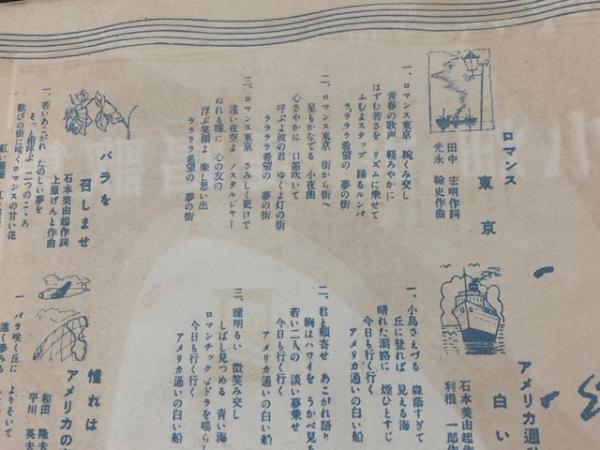 ロマンス東京
田中宏明作詞
光永翰史作曲
一、ロマンス東京 腕くみ交し
青春の歌 軽ろやかに
はずむ若さを リズムに乗せて
ふむよステップ 踊るルンバ
ラララ希望の 夢の街
二、ロマンス東京 街から街へ
星もかなでる 小夜曲
心さやかに 口笛吹いて
呼ぶよ彼の君 ゆくよ灯の街
ラララ希望の 夢の街
三、ロマンス東京 さみしく更けて
遠い夜空よ ノスタルジャー
ぬれる瞳に 心の友の
浮ぶ笑顔よ 楽し思い出
ラララ希望の 夢の街
バラを召しませ
石本美由起作詞
上原げんと作曲
一、若いあこがれ たのしい夢を
そっと結ぶよ 二つのこゝろ
歓びの街に咲くロマンスの甘い花
アメリカ通い
白い
石本美由起作
利根一郎作
一、小鳥さえづる
丘に登れば 見える海
晴れた潮路に 煙ひとすじ
今日も行く行く
アメリカ通いの白い船
二、君と頬寄せ あこがれ語り
胸はハワイを うかべ見る
若い二人の 淡い夢乗せ
今日も行く行く
アメリカ通いの白い船
三、瞳明るい 微笑み交し
しばし見つめる 青い海
ロマンチックな ドラを鳴らし
今日も行く行く
アメリカ通いの白い船
憧れは
アメリカの
和田隆夫
平川英夫
一 バラ咲く丘に よりそいて